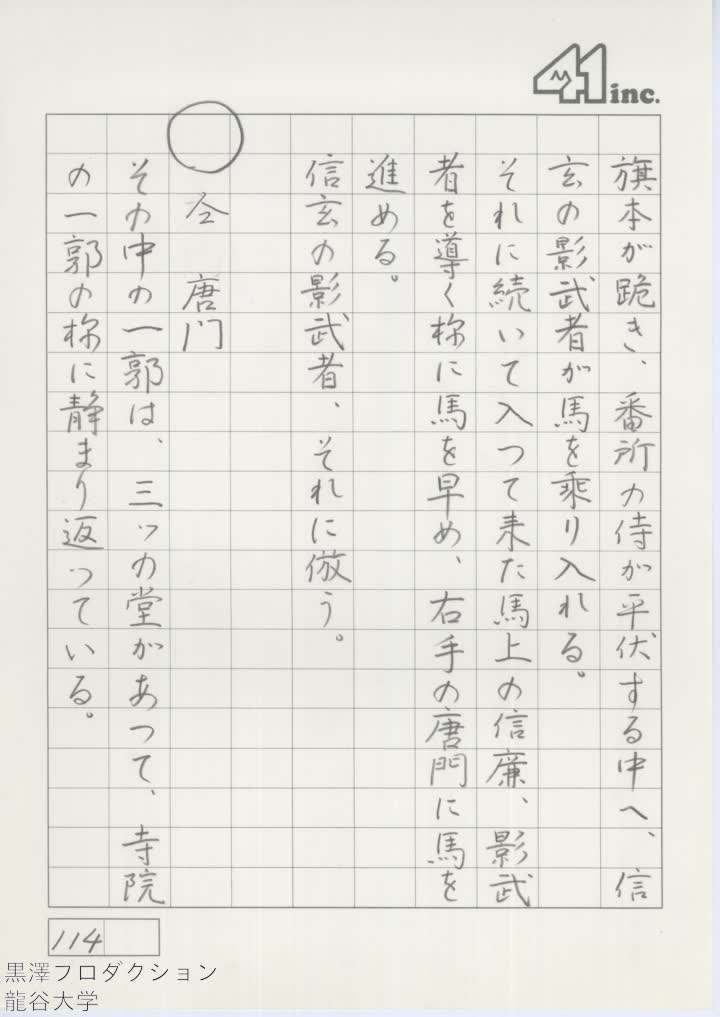 41 inc.
旗本が跪き、番所の侍が平伏する中へ、信
玄の影武者が馬を乗り入れる。
それに続いて入つて来た馬上の信廉、影武
者を導く様に馬を早め、右手の唐門に馬を
進める。
信玄の影武者、それに倣う。
○
仝 唐门
その中の一郭は、三ッの堂があつて、寺院
の一郭の様に静まり返っている。
114
黒澤フロダクション
龍谷大学